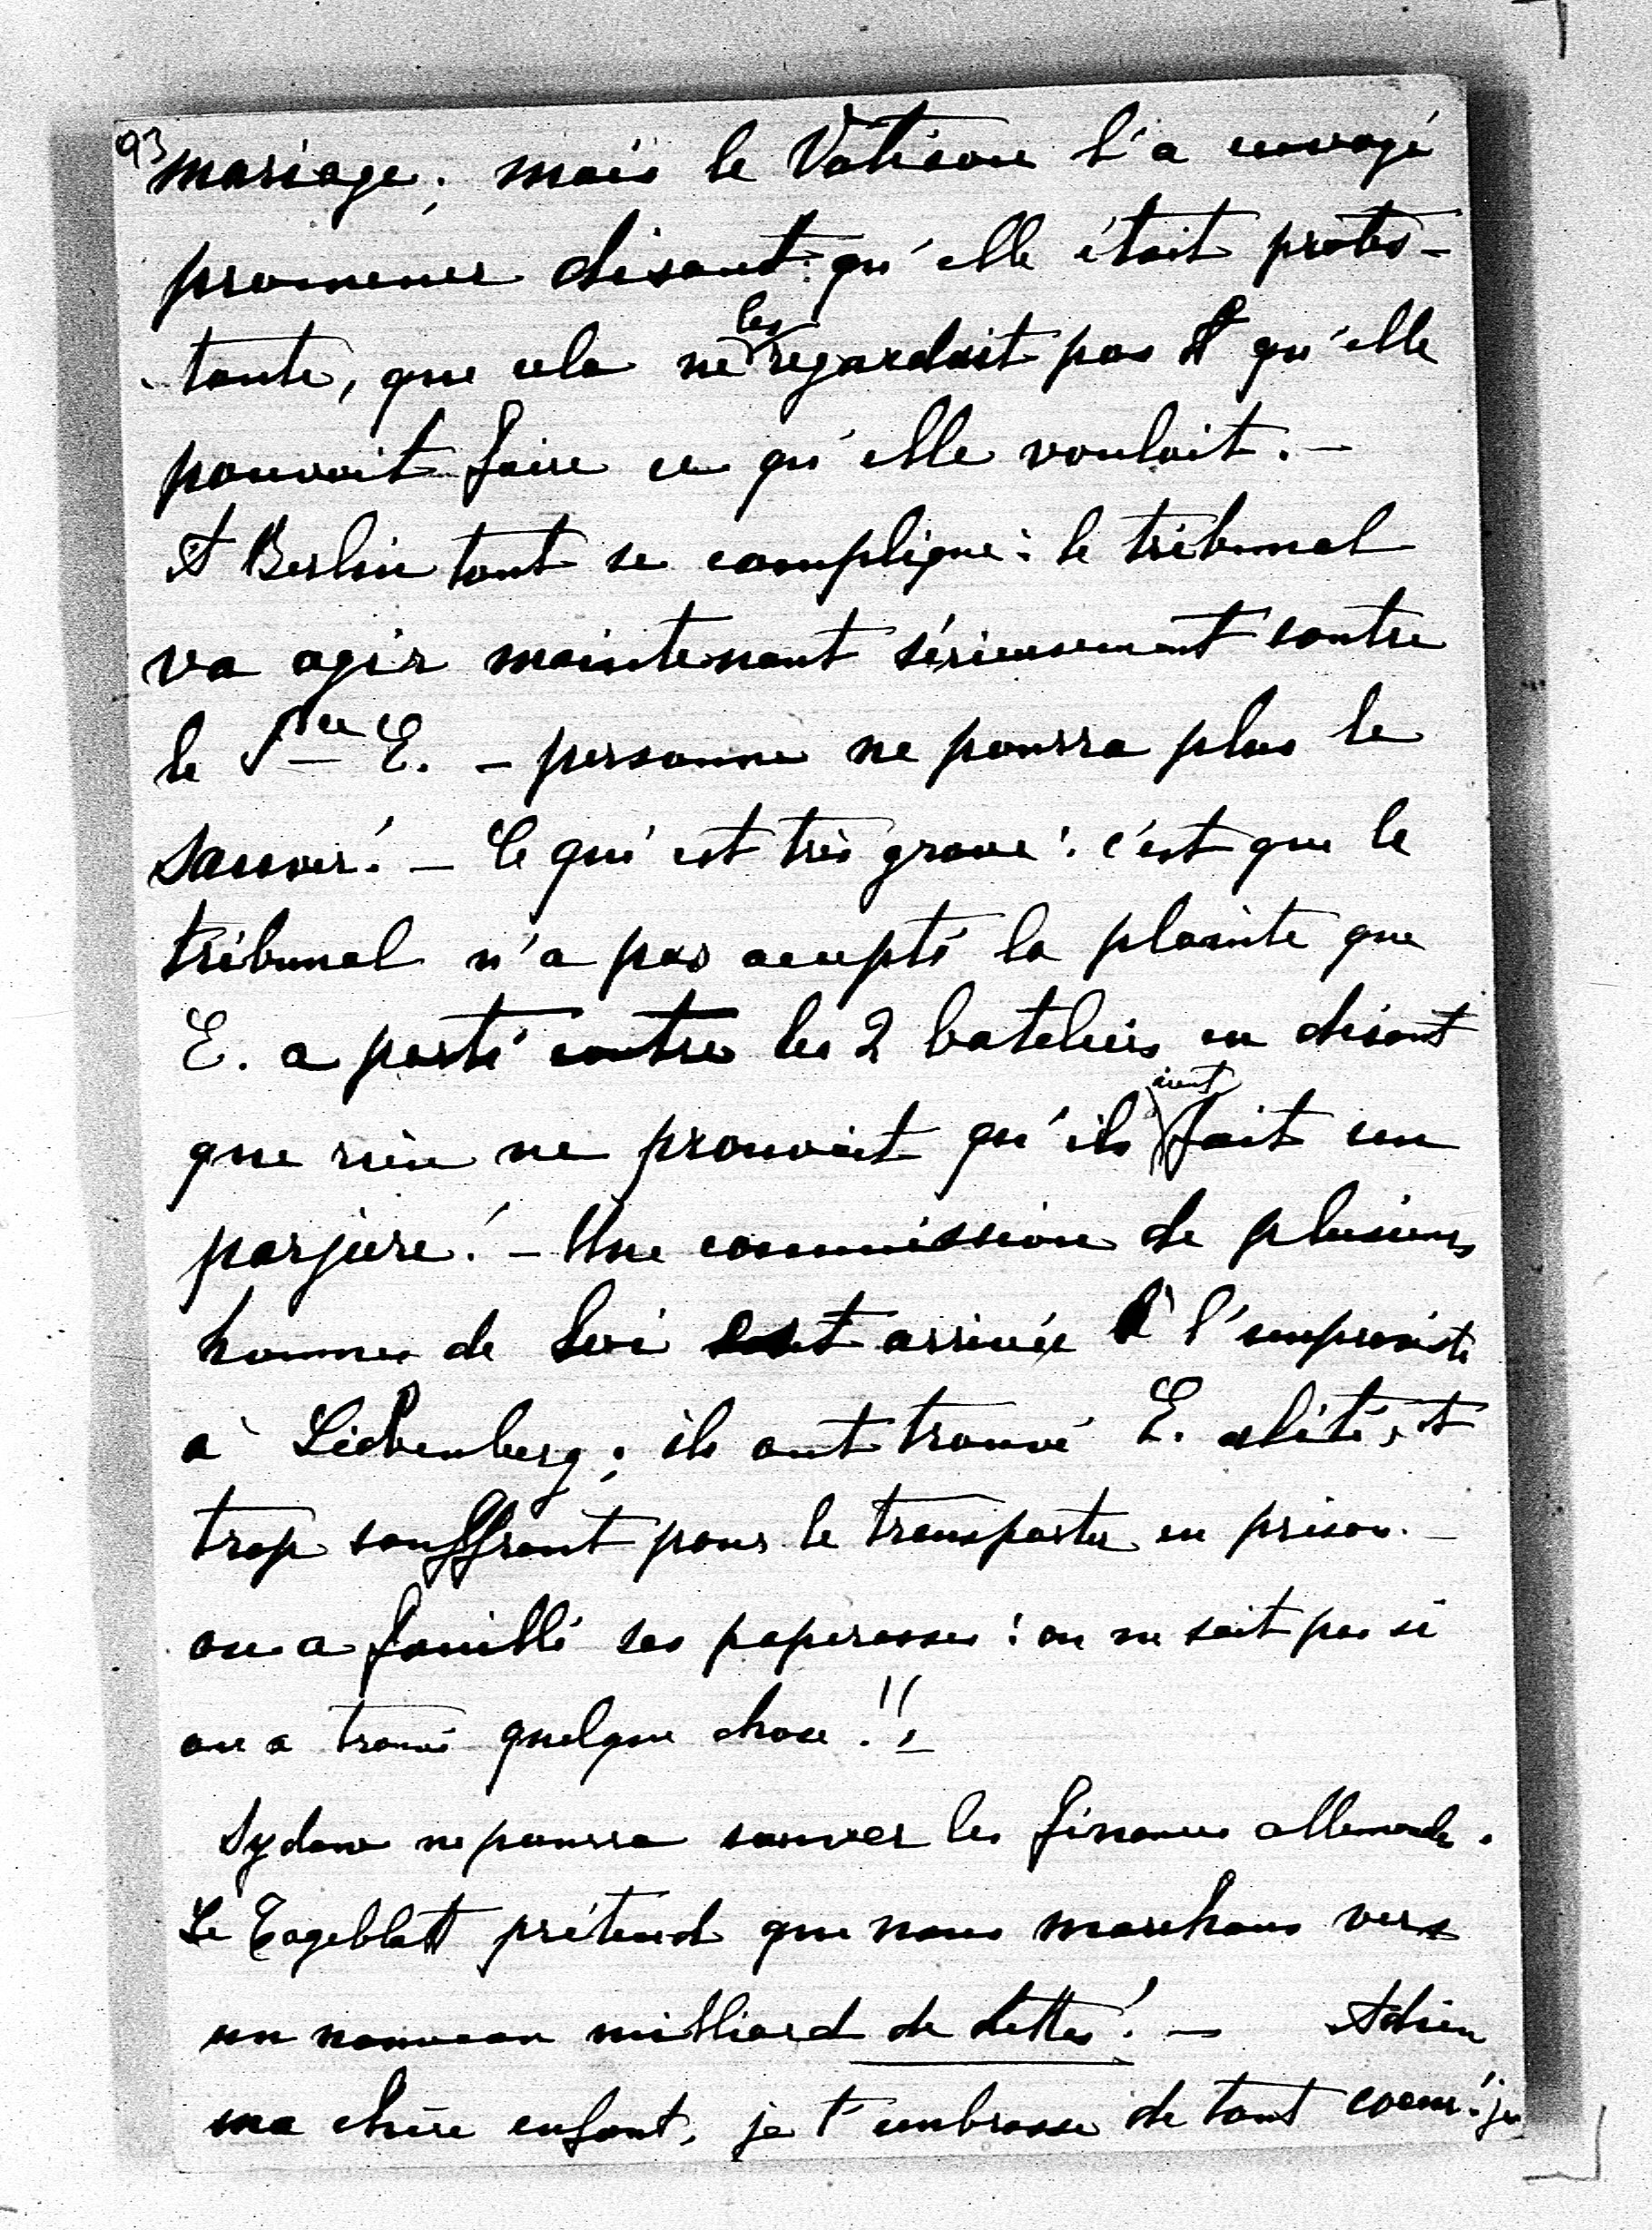 93
mariage; mais le Vatican l'a envoyé
promener disant qu'elle était protes-
tante, que cela ne les regardait pas et qu'elle
pouvait faire ce qu'elle voulait. –
A Berlin tout se complique: le tribunal
va agir maintenant sérieusement contre
le Pce E. – personne ne pourra plus le
sauver! – Ce qui est très grave: c'est que le
tribunal n'a pas accepté la plainte que
E. a porté contre les 2 bateliers en disant
que rien ne prouvait qu'ils aient fait un
parjure! – Une commission de plusieurs
hommes de loi est arrivée à l'improviste
à Liebenberg; ils ont trouvé E. alité, et
trop souffrant pour le transporter en prison. –
on a fouillé ses paperasses: on ne sait pas si
on a trouvé quelque chose!! –
Sydow ne pourra sauver les finances allemandes.
Le Tageblatt prétend que nous marchons vers
un nouveau milliard de dettes! – Adieu
ma chère enfant, je t'embrasse de tout coeur! je